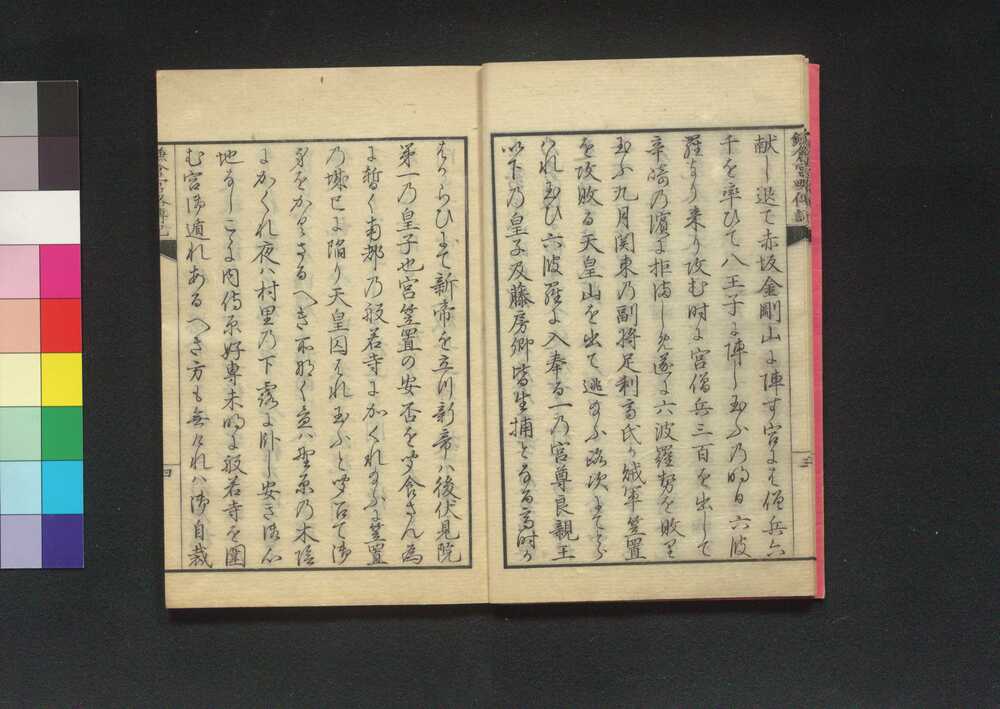 鎌倉宮略傳記
三
献し退て赤坂金剛山に陣す宮にも僧兵六
千を率ひて八王子に陣し玉ふ乃時日六波
羅より来り攻む時に宮僧兵三百を出して
辛崎乃濱に拒満しめ遂に六波羅勢を敗り
玉ふ九月関東乃副将足利高氏か絨軍笠置
を攻敗る天皇山を出て逃給ふ路次にてとら
はれ玉ひ六波羅に入奉る一乃宮尊良親王
以下乃皇子及藤房卿皆生捕となる高時か
はからひにて新帝を立川新帝ハ後伏見院
第一乃皇子也宮笠置の安否を聞食さん為
に暫く南都乃般若寺にかくれ給ふに笠置
乃城已に陥り天皇囚はれ玉ふと聞えて御
身をかくさるへき所なく昼ハ野原乃木陰
にかくれ夜ハ村里乃下露に臥し安き御心
地なしこゝに内侍原好専未明に般若寺を圍
む宮御遁れあるへき方も無けれハ御自裁
鎌倉宮略傳記
四